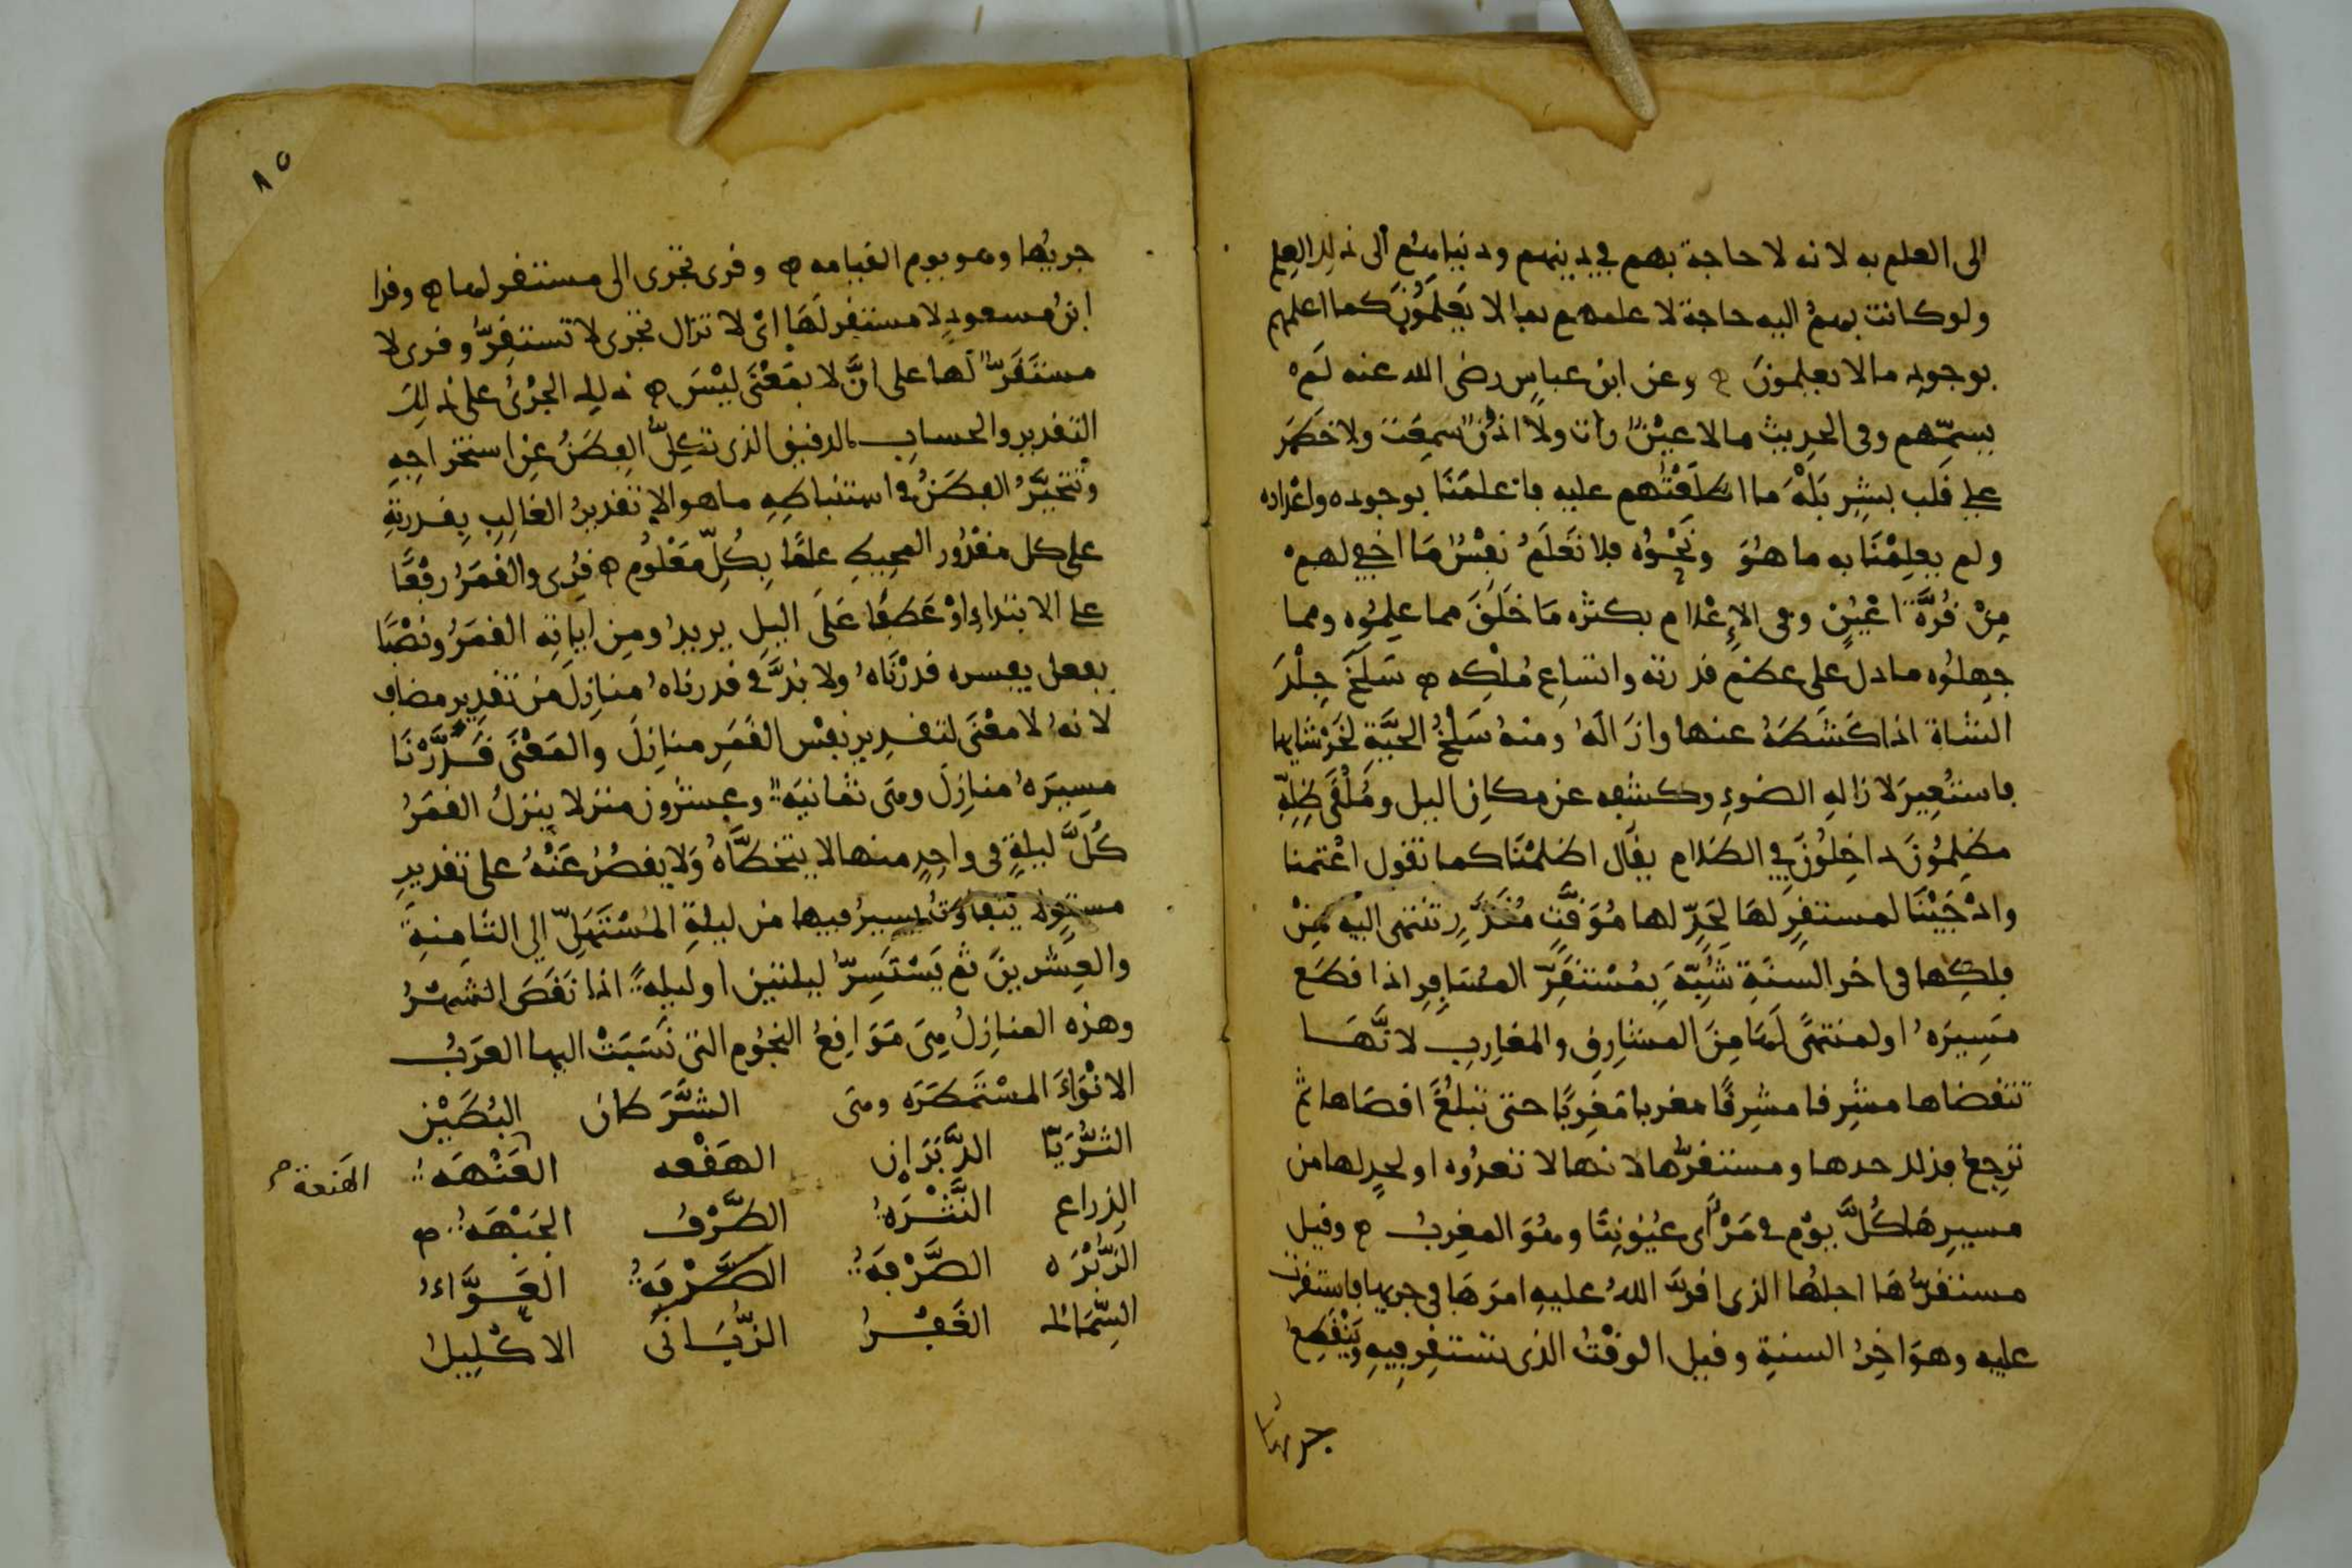 الى العلم به لانه لا حاجة بهم في دينهم ودنياهم الى ذلك العلم
ولو كانت بهم اليه حاجة لاعلمهم بما لا يعلمون كما اعلمهم
بوجود ما لا يعلمون وعن ابن عباس رضى الله عنه لم
يسمهم وفى الحديث ما لا عين رات ولا اذن سمعت ولا خطر
على قلب بشر بله ما اطلعتهم عليه فاعلمنا بوجوده واعداده
ولم يعلمنا به ما هو ونحوه فلا تعلم نفس ما اخفي لهم
من قرة اعين وفى الاعلام بكثره ما خلق مما علموه ومما
جهلوه ما دل على عظم قدرته واتساع ملكه سلخ جلد
الشاة اذا كشطه عنها وازاله ومنه سلخ الحية لخرشايها
فاستعير لازاله الضوء وكشفه عن مكان اليل وملقى ظله
مظلمون داخلون في الظلام يقال اظلمنا كما تقول اعتمنا
وادجينا لمستقر لها لحد لها موقت مقدر تنتهى اليه من
فلكها فى اخر السنة شبه بمستقر المسافر اذا قطع
مسيره او لمنتهى لها من المشارق والمغارب لانها
تتقصاها مشرقا مشرقا مغربا مغربا حتى تبلغ اقصاها ثم
ترجع فذلك حدها ومستقرها لانها لا تعدوه او لحد لها من
مسيرها كل يوم في مرأى عيوننا وهو المغرب وقيل
مستقرها اجلها الذى اقر الله عليه امرها فى جريها فاستقرت
عليه وهو اخر السنة وقيل الوقت الذى تستقر فيه وينقطع
جريها
٨٥
جريها وهو يوم القيامه وقرى تجرى الى مستقر لها وقرا
ابن مسعود لا مستقر لها اى لا تزال تجرى لا تستقر وقرى لا
مستقر لها على ان لا بمعنى ليس ذلك الجرى على ذلك
التقدير والحساب الدقيق الذى تكل الفطن عن استخراجه
وتتحير الفطن في استنباطه ما هو الا تقدير الغالب بقدرته
على كل مقدور المحيط علما بكل معلوم قرى والقمر رفعا
على الابتداء او عطفا على اليل يريد ومن اياته القمر ونصبا
بفعل يفسره قدرناه ولا بد في قدرناه منازل من تقدير مضاف
لانه لا معنى لتقدير نفس القمر منازل والمعنى قدرنا
مسيره منازل وهى ثمانيه وعشرون منزلا ينزل القمر
كل ليلة فى واحد منها لا يتخطاه ولا يقصر عنه على تقدير
مستو لا يتفاوت يسير فيها من ليلة المستهل الى الثامنة
والعشرين ثم يستسر ليلتين او ليله اذا نقص الشهر
وهذه المنازل هى مواقع النجوم التى نسبت اليها العرب
الانواء المستمطره وهى الشرطان البطين
الثريا الدبران الهقعه العنهه الهنعة
الذراع النثره الطرف الجبهه
الزبره الصرفه الصرفة العواء
السماك الغفر الزبانى الاكليل